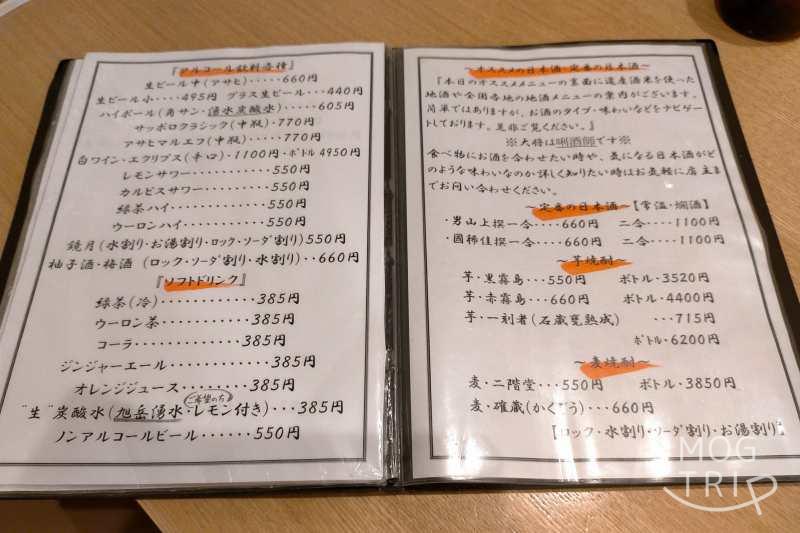 『アルコール飲料各種』
生ビール中(アサヒ)・・・・・660円
生ビール小・・・・495円 グラス生ビール・・・440円
ハイボール(角サン・湧水炭酸水)・・・・605円
サッポロクラシック(中瓶)・770円
アサヒマルエフ(中瓶)・・・・770円
白ワイン・エクリプス(辛口)・1100円・ボトル 4950円
レモンサワー・・・・・・・・・・550円
カルピスサワー・・・・・・・・550円
緑茶ハイ・・・・・・・・・・・550円
ウーロンハイ・・・・・・・・・550円
鏡月(水割り・お湯割り・ロック・ソーダ割り)550円
柚子酒・梅酒 (ロック・ソーダ割り・水割り)・・660円
『ソフトドリンク』
緑茶(冷)・・・・・・・・・・・385円
ウーロン茶・・・・・・・・・・・385円
コーラ・・・・・・・・・・・・・385円
ジンジャーエール・・・・・・・・・・・385円
オレンジジュース・・・・・・・・・385円
ご希望の方
"生"炭酸水(旭岳湧水・レモン付き)・・・385円
ノンアルコールビール・・・・・・550円
～オススメの日本酒・定番の日本酒～
『本日のオススメメニューの裏面に道産酒米を使った
地酒や全国各地の地酒メニューの案内がございます。
簡単ではありますが、お酒のタイプ・味わいなどをナビゲー
トしております。是非ご覧ください。』
※大将は唎酒師です※
食べ物にお酒を合わせたい時や、気になる日本酒がど
のような味わいなのか詳しく知りたい時はお気軽に店主ま
でお問い合わせください。
～定番の日本酒～【常温・燗酒】
・男山上撰一合・・・・660円 二合・・・・1100円
・國稀佳撰一合・・・・660円 二合・・・・1100円
～芋焼酎～
芋・黒霧島・・・550円 ボトル・3520円
芋・赤霧島・・・660円 ボトル・4400円
芋・一刻者(石蔵甕熟成) ・・・715円
ボトル・6200円
～麦焼酎～
麦・二階堂・・・550円 ボトル・3850円
麦・確蔵(かくぞう)・・・660円
【ロック・水割り・ソーダ割り・お湯割り】
MOG
TRIP